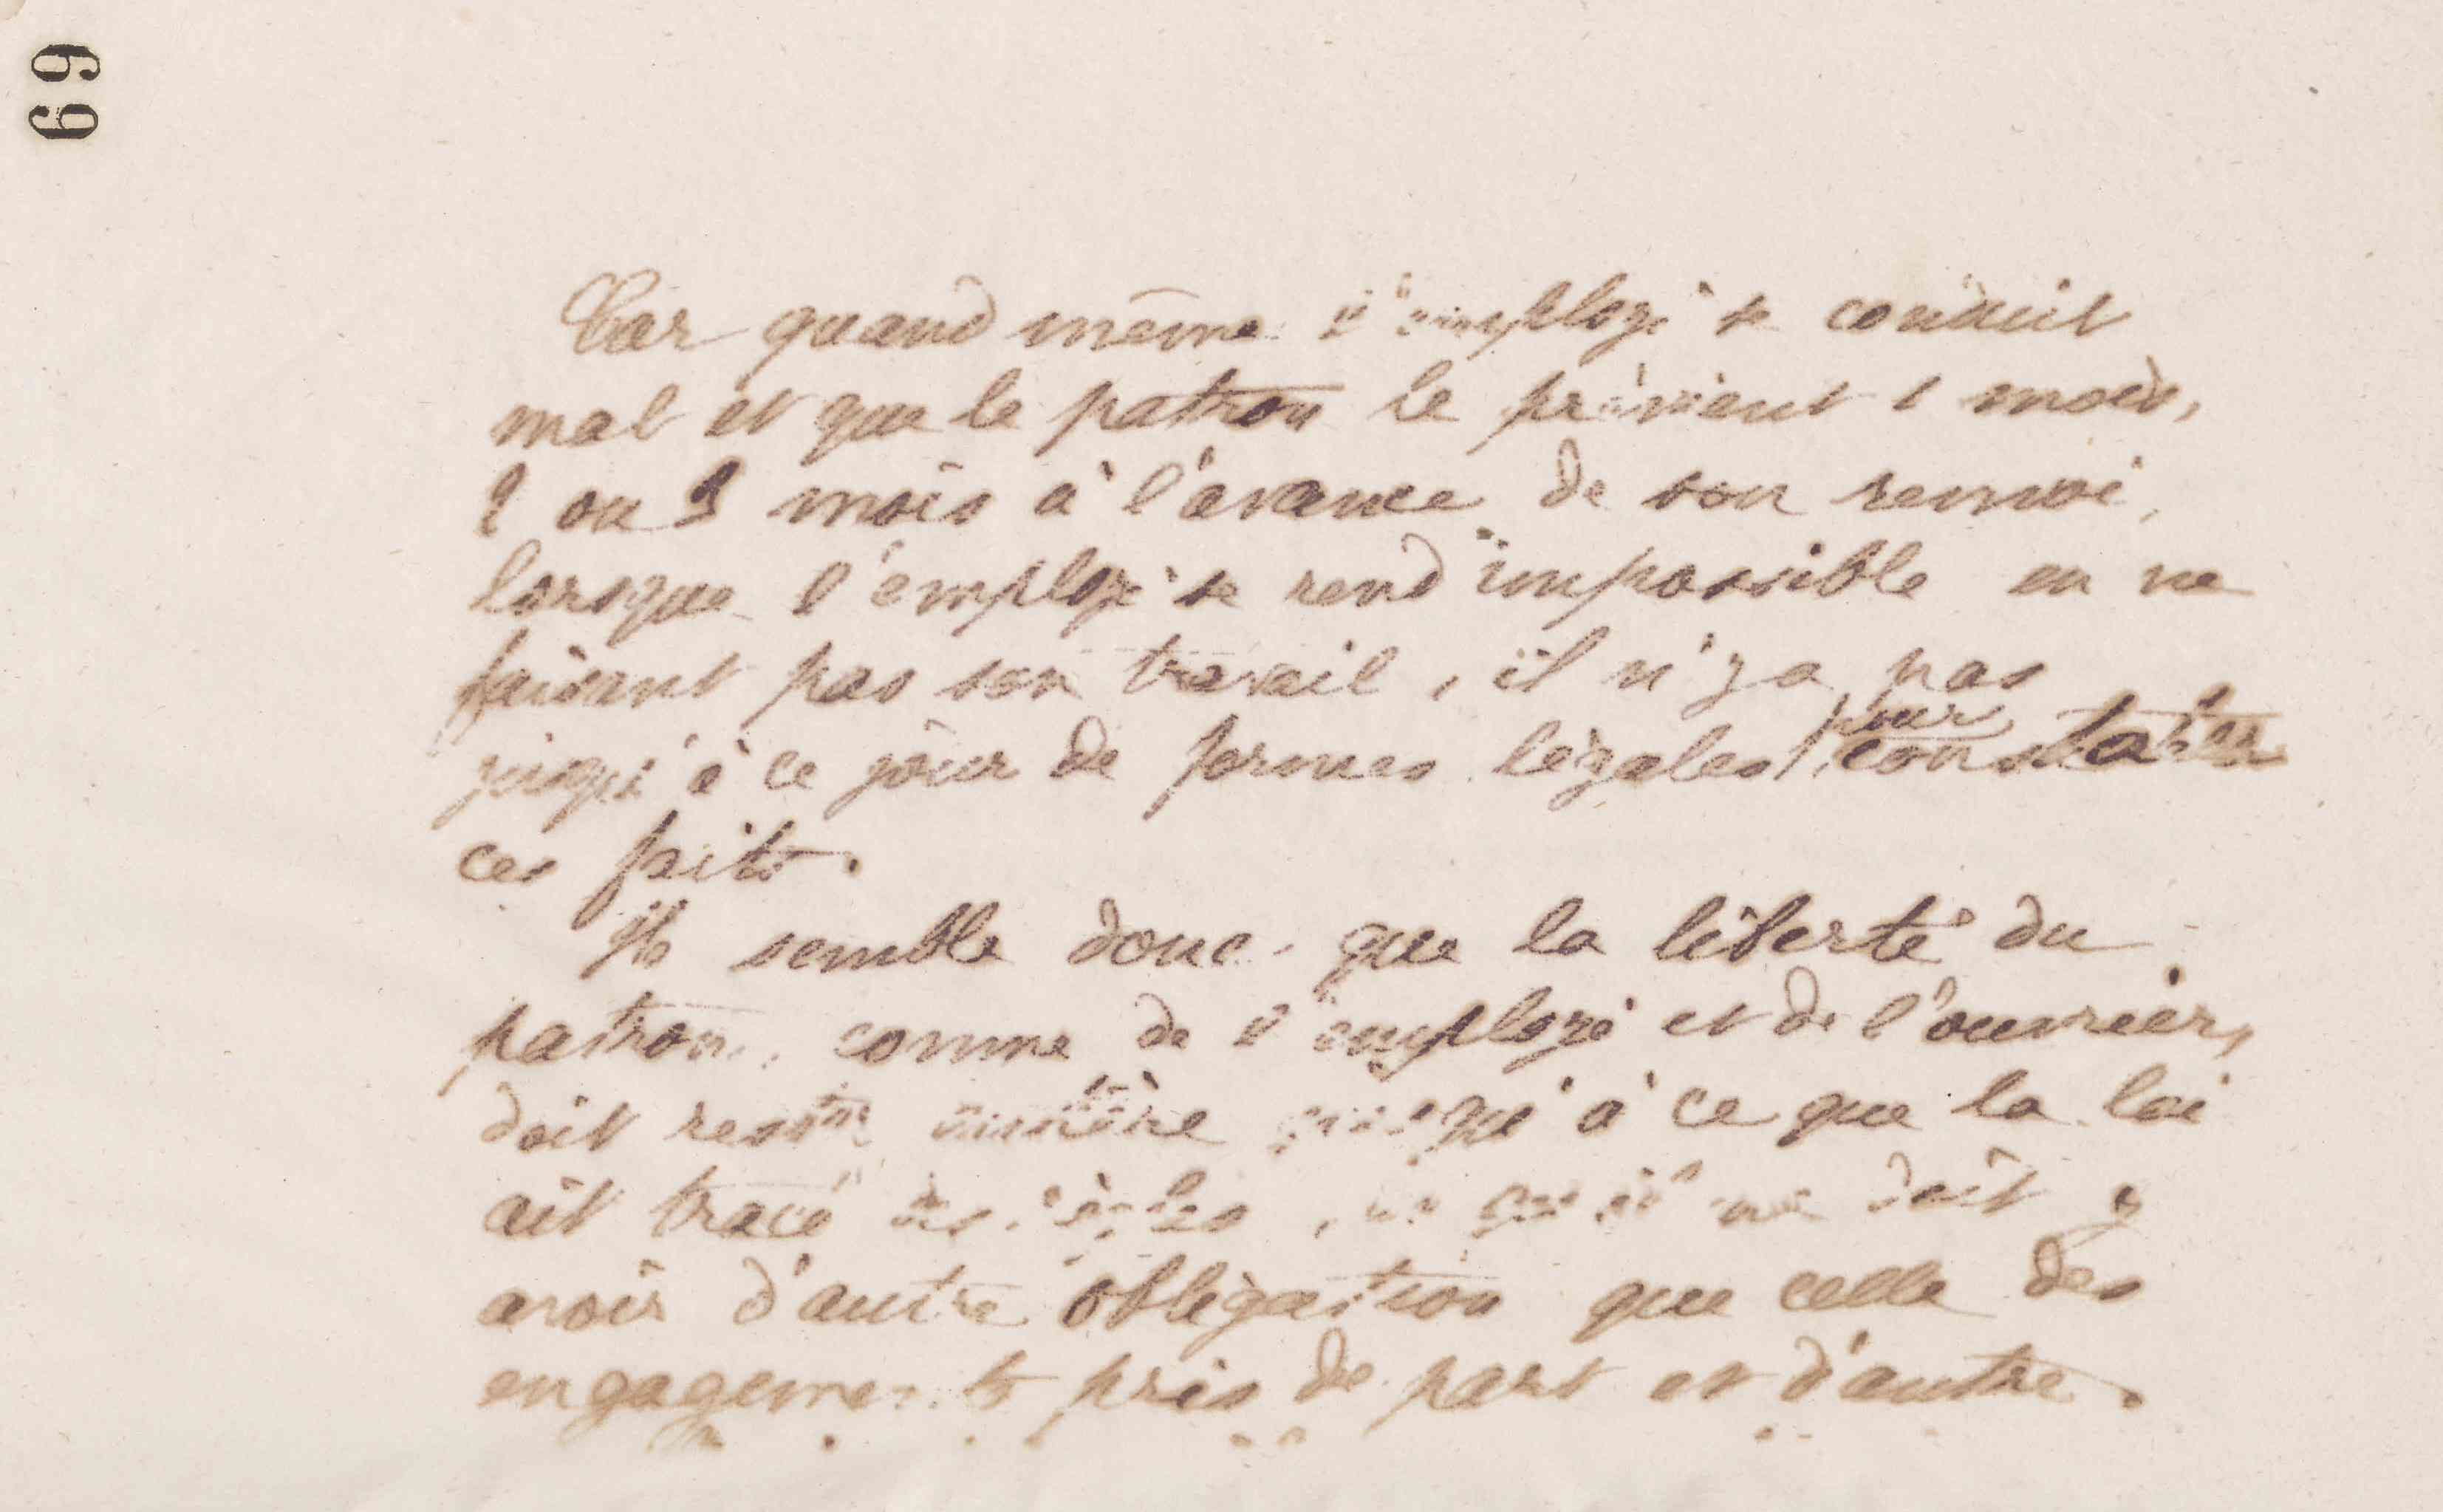 69
Car quand même l'employé se conduit
mal et que le patron le prévient 1 mois,
2 ou 3 mois à l'avance de son renvoi,
lorsque l'employé se rend impossible en ne
faisant pas son travail, il n'y a pas
jusqu'à ce jour de formes légales pour constater
ces faits.
Il semble donc que la liberté du
patron, comme de l'employé et de l'ouvrier,
doit rester entière jusqu'à ce que la loi
ait tracé des règles, et qu'il ne doit y
avoir d'autre obligation que celle des
engagements pris de part et d'autre.